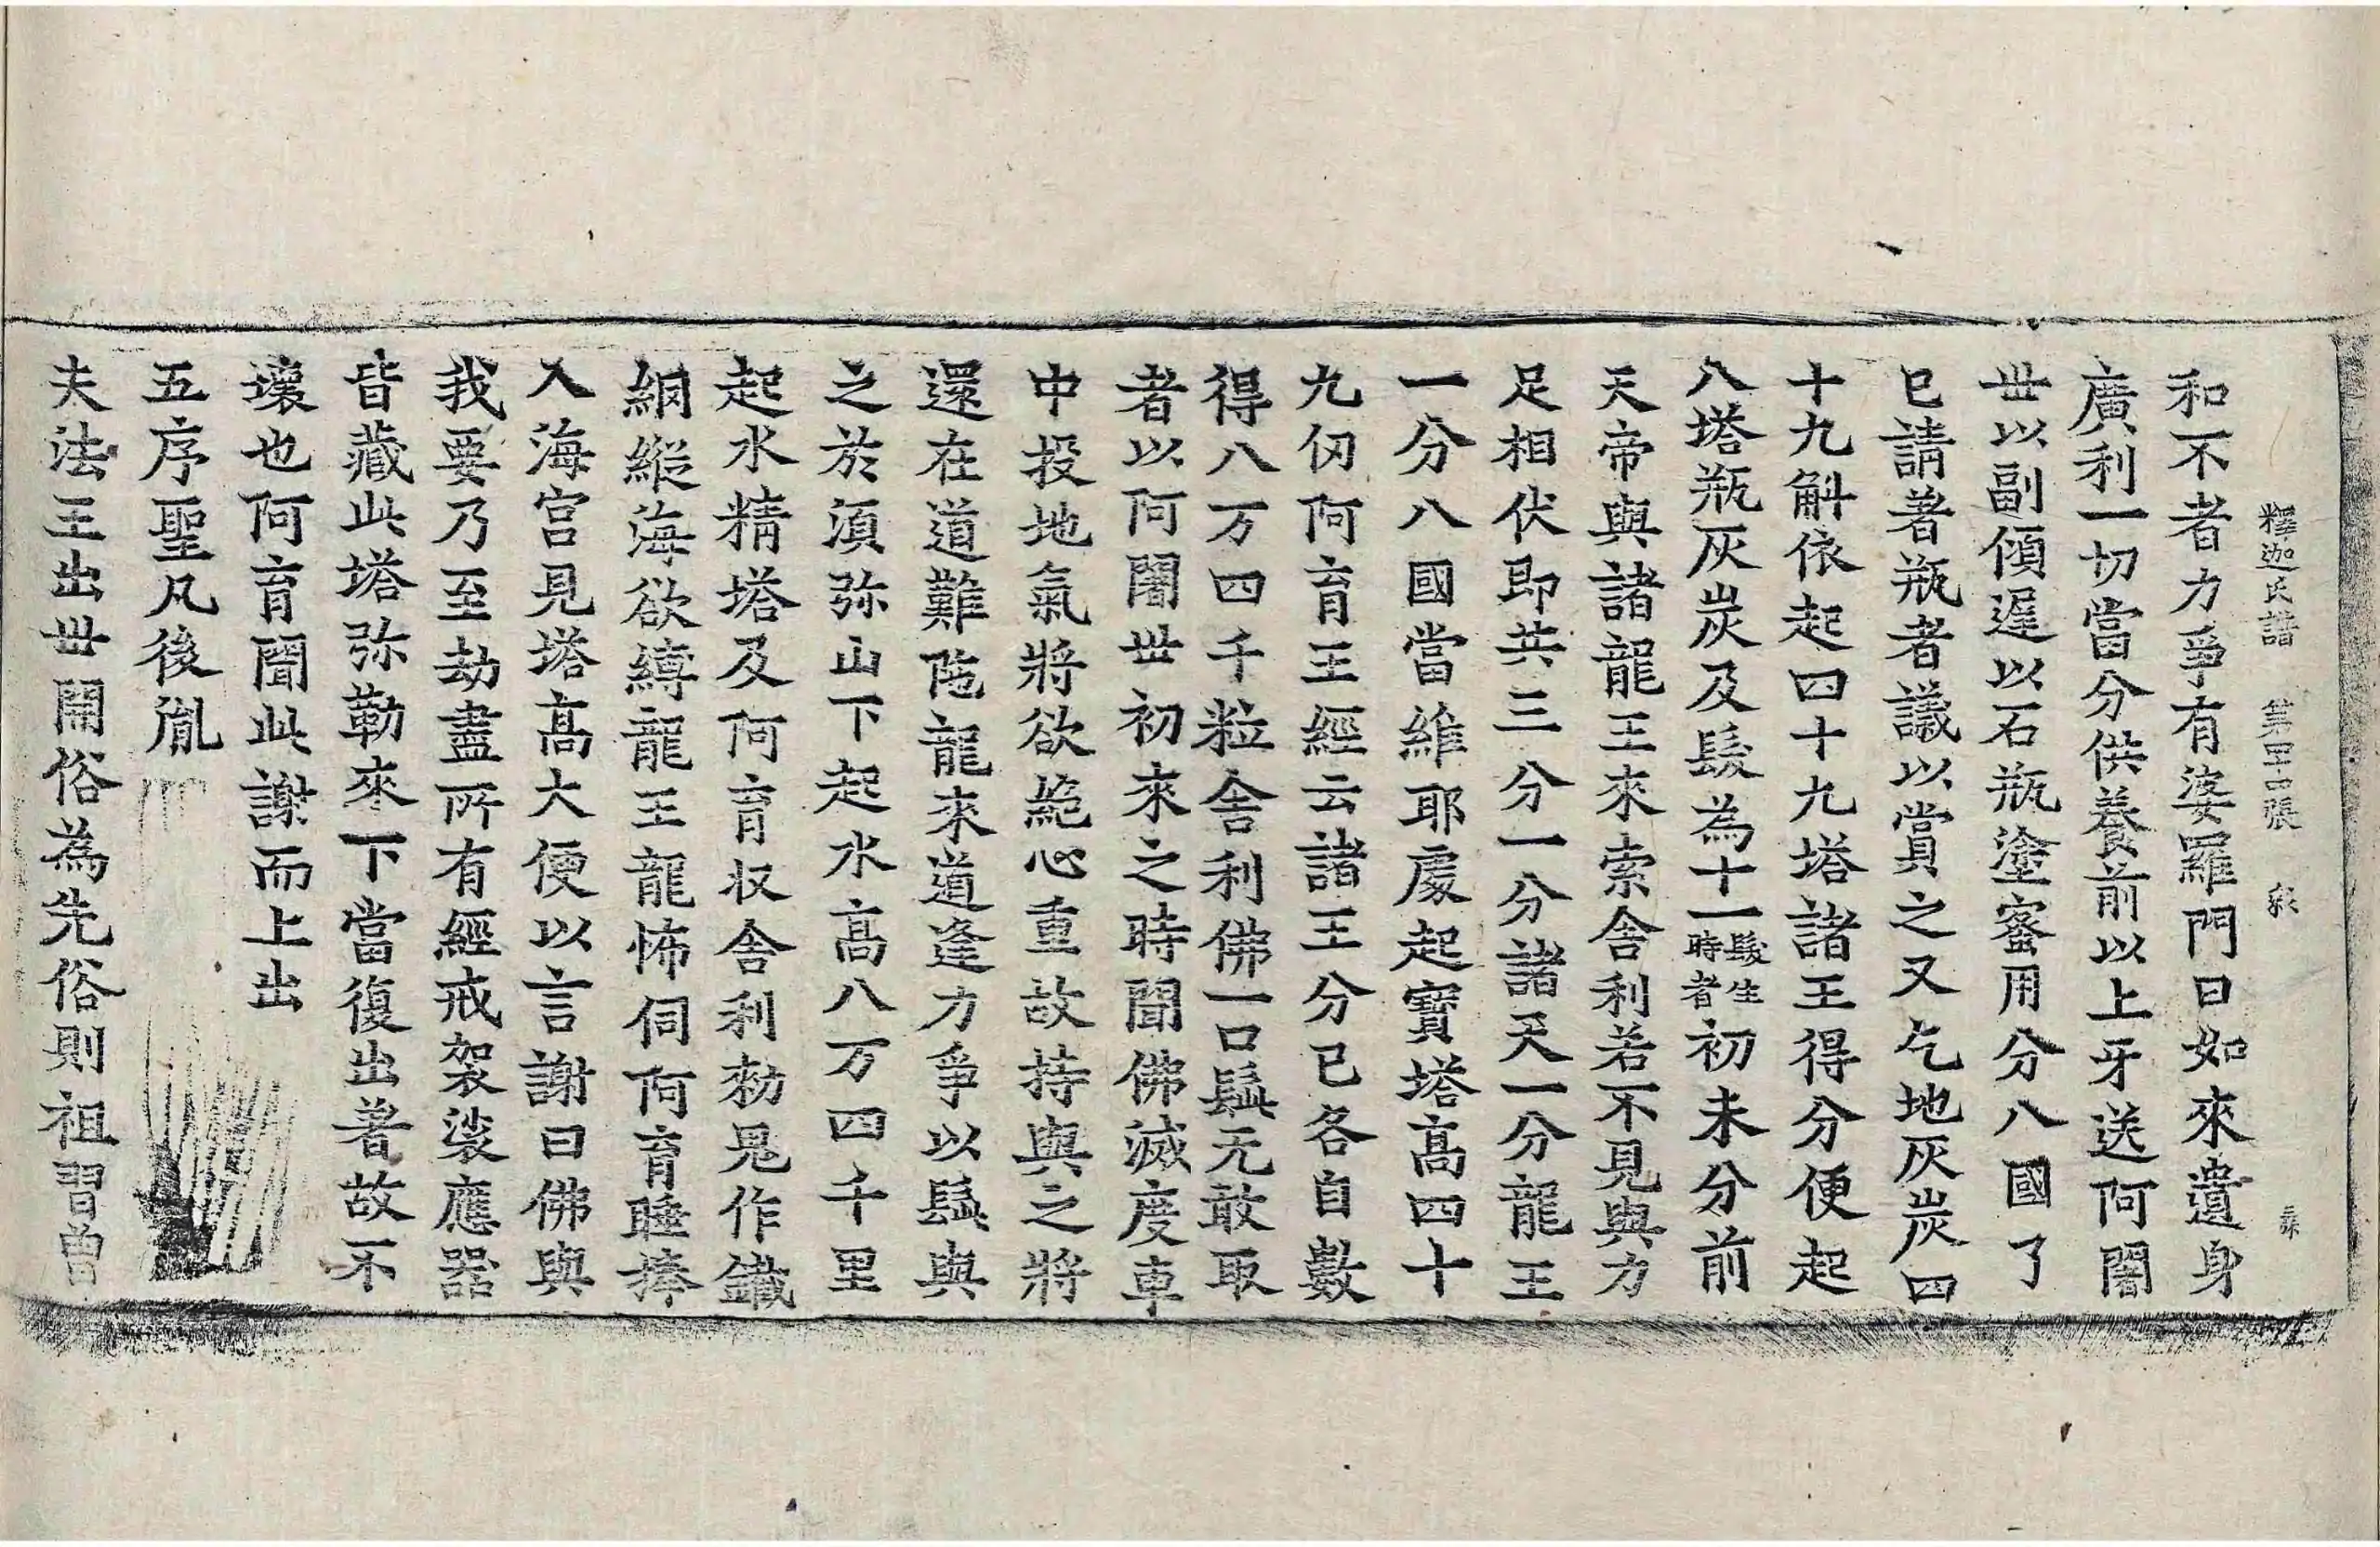 釋迦氏譜 第四十張 彀
和不者力爭有婆羅門曰如來遺身
廣利一切當分供養前以上牙送阿闍
丗以副傾遲以石瓶塗蜜用分八國了
已請著瓶者議以賞之又乞地灰炭四
十九斛依起四十九塔諸王得分便起
八塔瓶灰炭及髮為十一髮生時者初未分前
天帝與諸龍王來索舍利若不見與力
足相伏即共三分一分諸天一分龍王
一分八國當維耶處起寶塔高四十
九仞阿育王經云諸王分已各自數
得八万四千粒舍利佛一口髭无敢取
者以阿闍丗初來之時聞佛滅度車
中投地氣將欲絶心重故持與之將
還在道難陁龍來道逢力爭以髭與
之於湏弥山下起水高八万四千里
起水精塔及阿育収舍利勑鬼作鐵
網縱海欲縛龍王龍怖伺阿育睡捧
入海宮見塔高大便以言謝曰佛與
我要乃至劫盡所有經戒袈裟應器
皆藏此塔弥勒來下當復出著故不
壞也阿育聞此謝而上出
五序聖凡後胤
夫法王出丗開俗為先俗則祖習曽